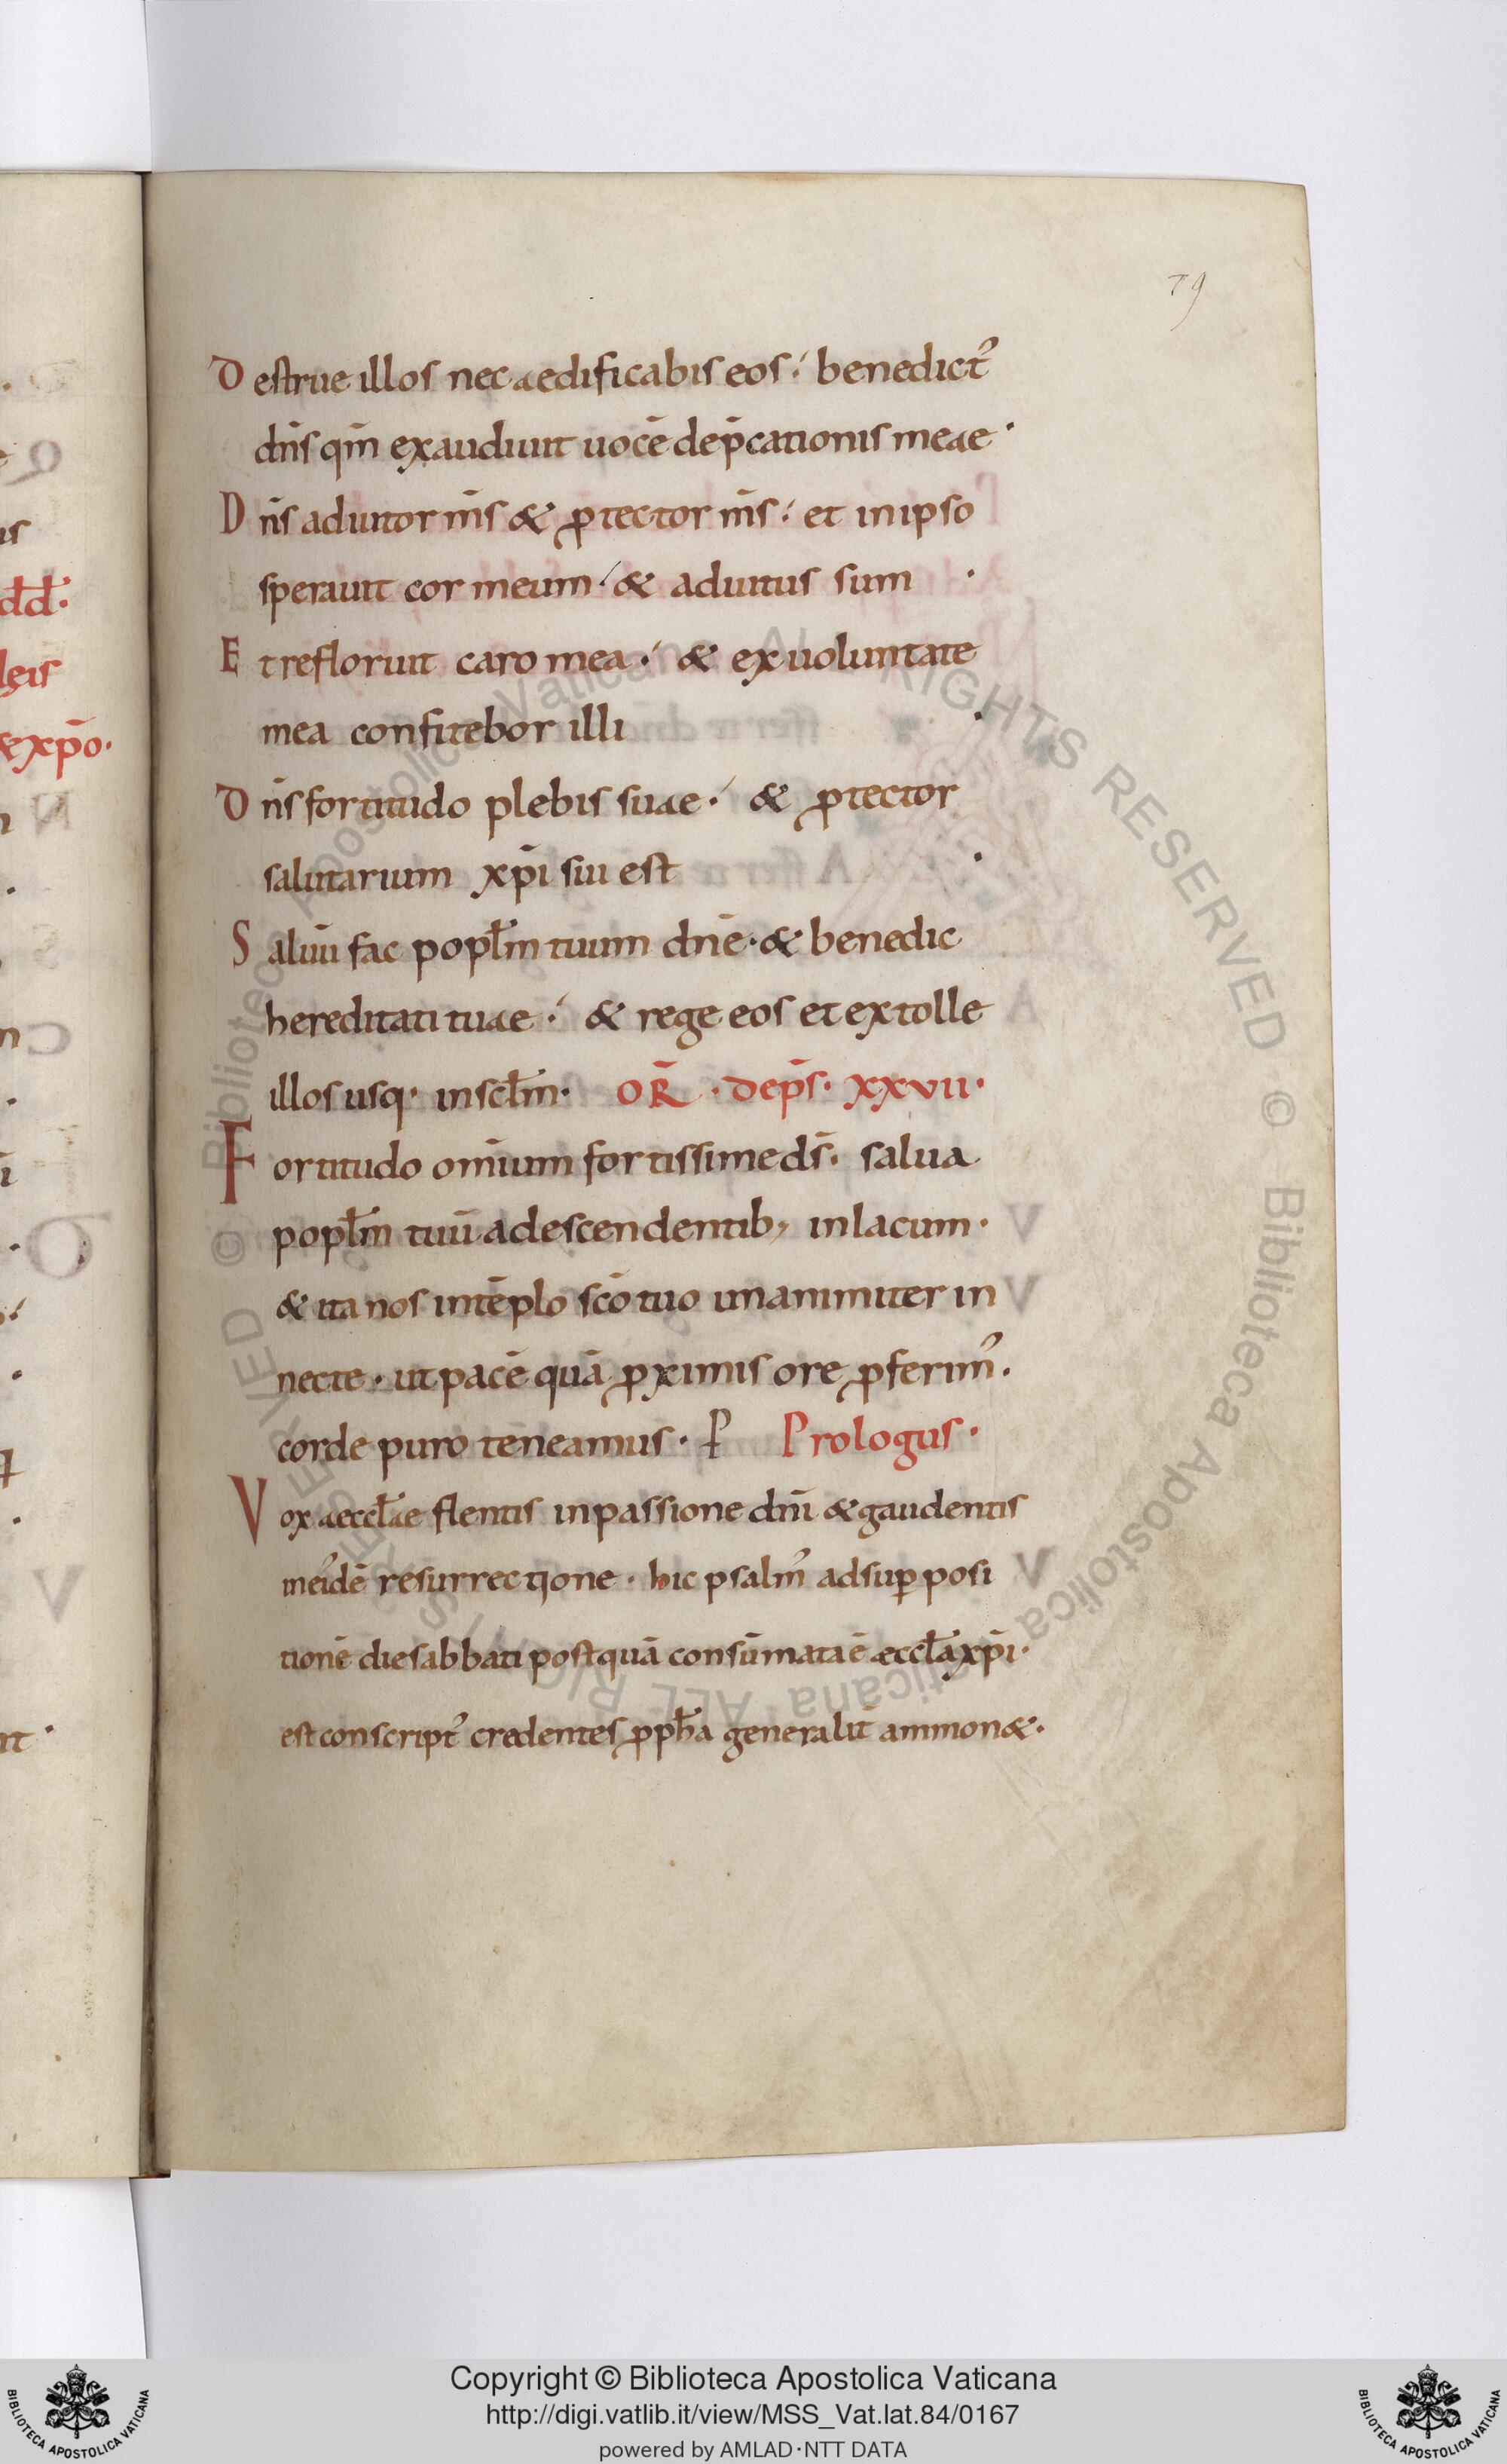 79
Destrue illos nec aedificabis eos·' benedict᾿
dn̄s qm̄ exaudiuit uocē dep̄cationis meae·
Dn̄s adiutor m̄s & ꝓtector m̄s·' et in ipso
sperauit cor meum·' & adiutus sum ·
Et refloruit caro mea·' & ex uoluntate
mea confitebor illi ·
Dn̄s fortitudo plebis suae·' & ꝓtector
salutarium xp̄i sui est ·
Saluū fac popl̄m tuum dn̄e· & benedic
hereditati tuae·' & rege eos et extolle
illos usq· in scl̄m· OR̄· de ps̄· xxvii·
Fortitudo om̄ium fortissime ds̄· salua
popl̄m tuū a descendentib; in lacum·
& ita nos in tēplo scō tuo unanimiter in
necte· ut pacē quā ꝓximis ore ꝓferim᾿·
corde puro teneamus· ꝑ Prologus·
Vox aeccl̄ae flentis in passione dn̄i & gaudentis
in ei᾿dē resurrectione· hic psalm᾿ ad suꝑposi
tionē die sabbati postquā consūmata ē aeccl̄a xp̄i·
est conscript᾿ credentes ꝓph̄a generalit̄ ammon&·
is
dd̄·
leis
& xp̄o·
Copyright © Biblioteca Apostolica Vaticana
http://digi.vatlib.it/view/MSS_Vat.lat.84/0167
powered by AMLAD·NTT DATA
BIBLIOTECA APOSTOLICA VATICANA
BIBLIOTECA APOSTOLICA VATICANA
© Biblioteca Apostolica Vaticana · ALL RIGHTS RESERVED © Biblioteca Apostolica Vaticana · ALL RIGHTS RESERVED